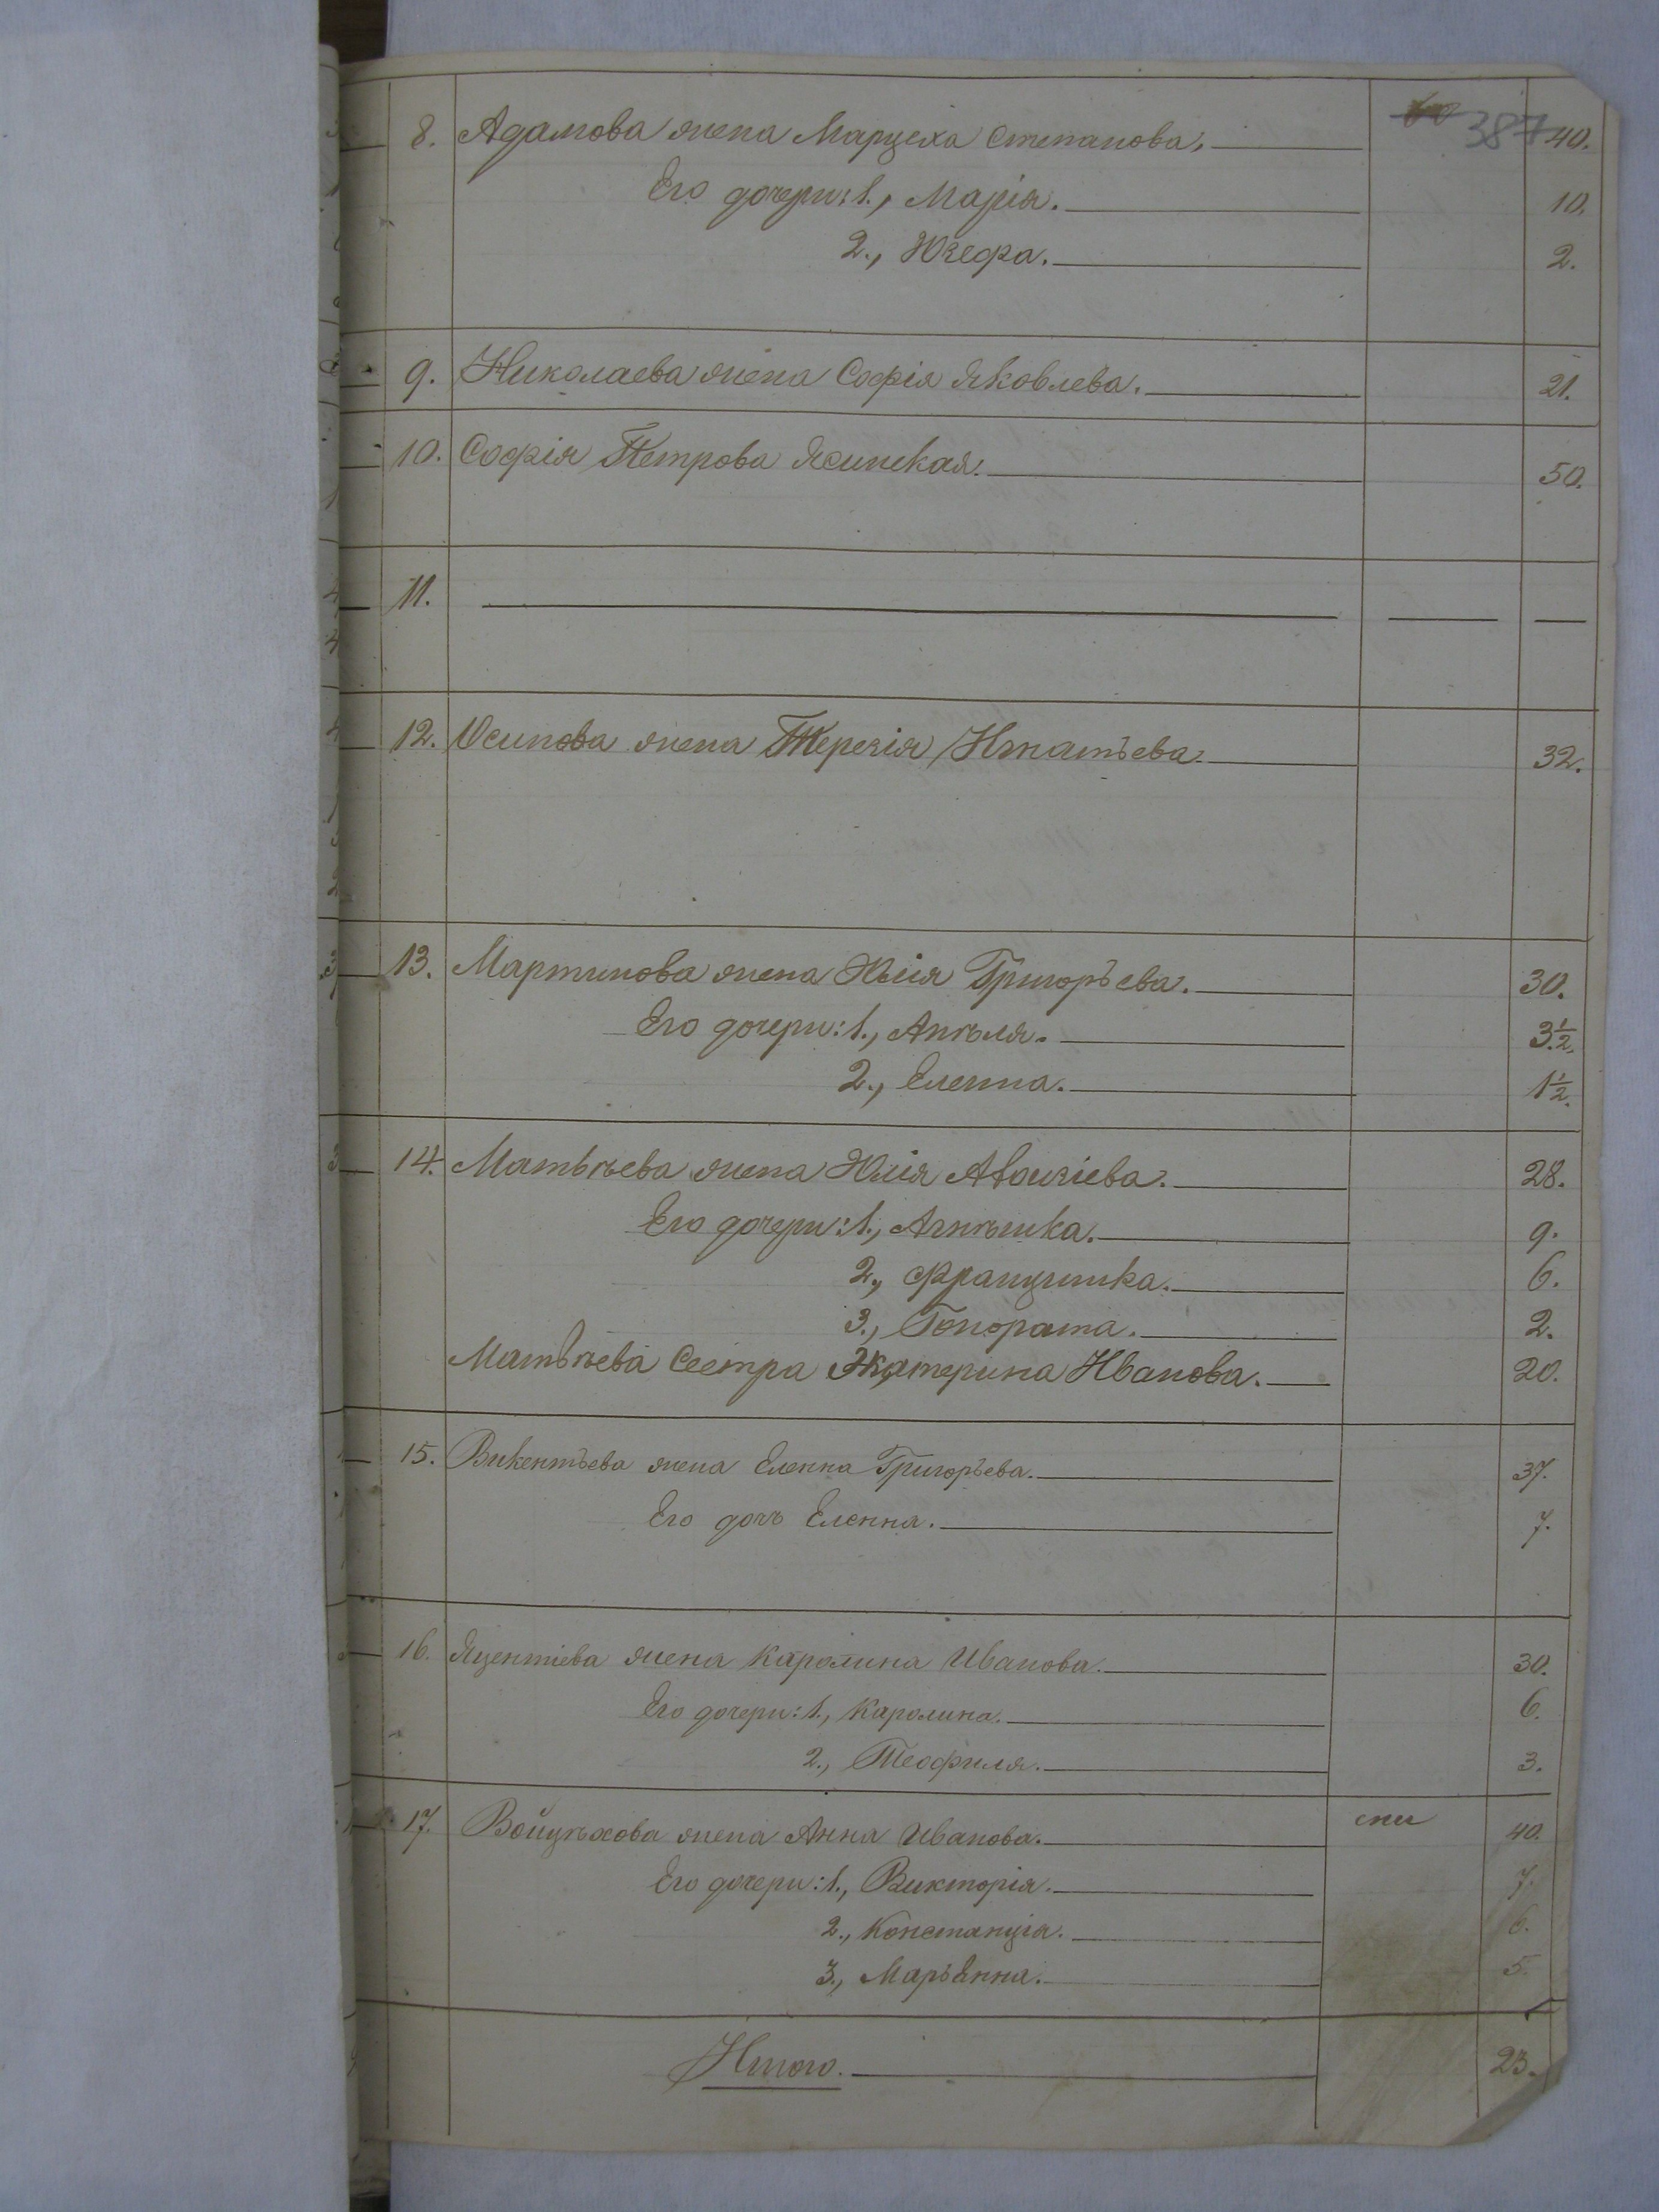 387
8. Адамова жена Марцеля Степанова. 40.
Его дочери: 1., Марія. 10.
2., Юзефа. 2.
9. Николаева жена Софія Яковлева. 21.
10. Софія Петрова Ясинская. 50.
11.
12. Осипова жена Терезія Игнатьева. 32.
13. Мартинова жена Юлія Григорьева. 30.
Его дочери: 1., Анѣля. 3½.
2., Еленна. 1½.
14. Матвѣева жена Юлія Алоизіева. 28.
Его дочери: 1., Агнѣшка. 9.
2., Францишка. 6.
3., Гонората. 2.
Матвѣева Сестра Екатерина Иванова. 20.
15. Викентьева жена Еленна Григорьева. 37.
Его дочь Еленна. 7.
16. Яцентіева жена Каролина Иванова. 30.
Его дочери: 1., Каролина. 6.
2., Теофиля. 3.
17. Войцѣхова жена Анна Иванова. 40.
Его дочери: 1., Викторія. 7.
2., Констанція. 6.
3., Марьянна. 5.
Итого. 23.